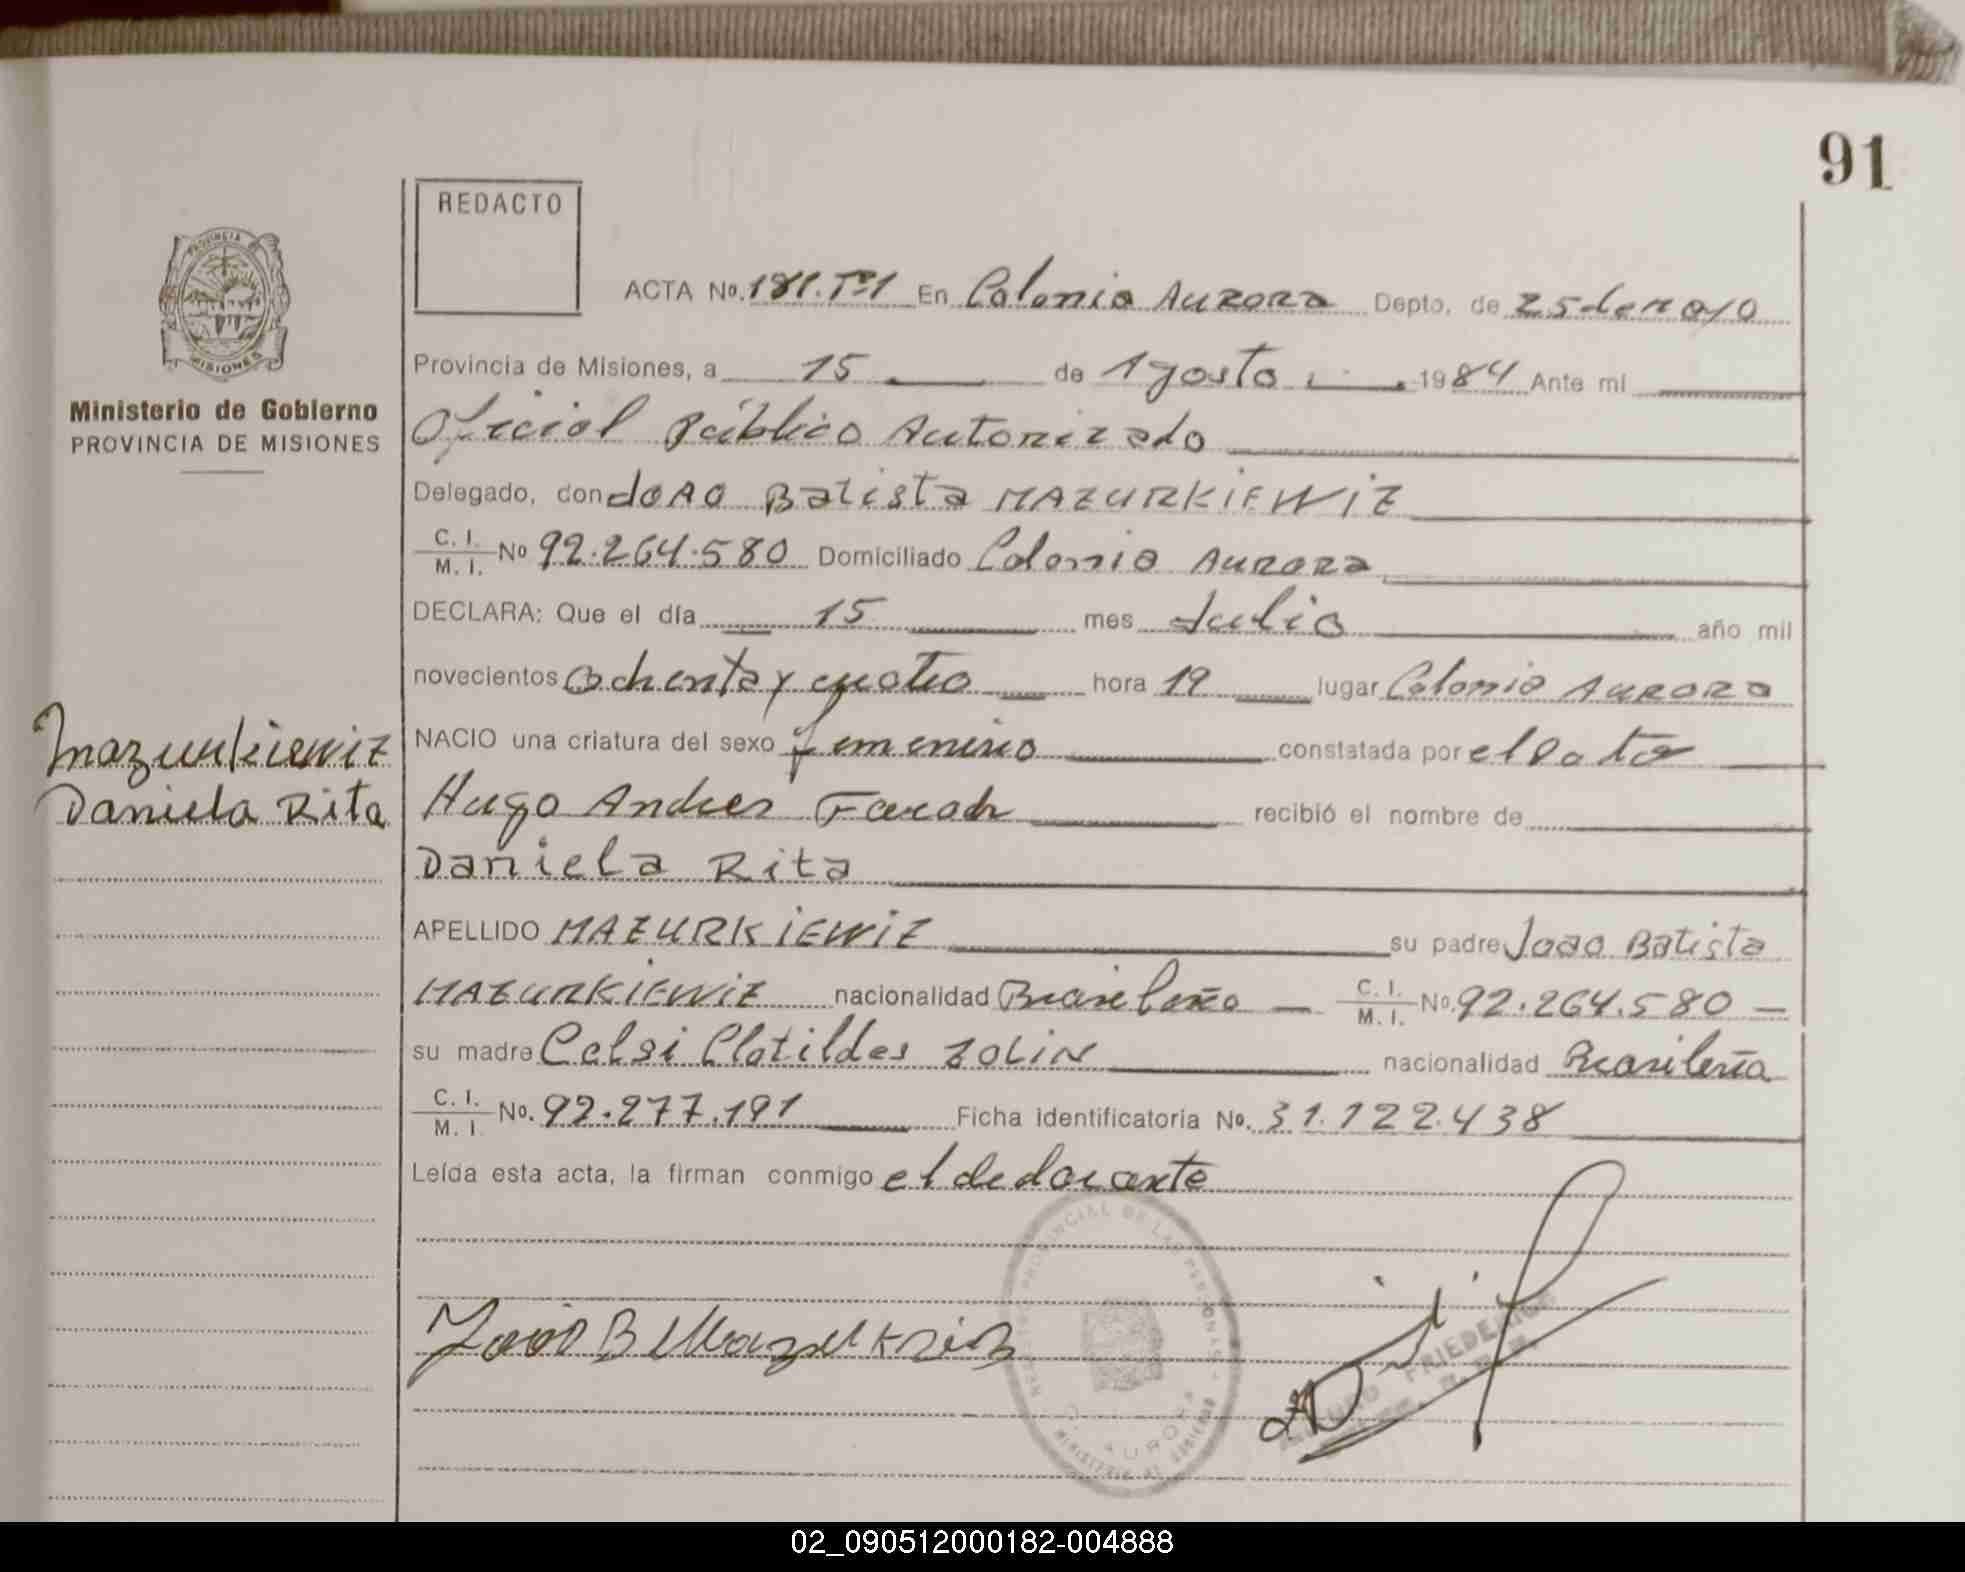 91
REDACTO
PROVINCIA DE
MISIONES
ACTA No. 181.Tº1 En Colonia Aurora Depto, de 25 de mayo
Provincia de Misiones, a 15 de Agosto 1984 Ante mí
Ministerio de Gobierno
PROVINCIA DE MISIONES
Oficial Público Autorizado
Delegado, don JOAO Batista MAZURKIEWIZ
C. I. M. I. No 92.264.580 Domiciliado Colonia Aurora
DECLARA: Que el día 15 mes Julio año mil
novecientos ochenta y cuatro hora 19 lugar Colonia Aurora
Mazurkiewiz
Daniela Rita
NACIO una criatura del sexo femenino constatada por el
Hugo Andres Farah recibió el nombre de
Daniela Rita
APELLIDO MAZURKIEWIZ su padre Joao Batista
MAZURKIEWIZ nacionalidad Brasileño C. I. M. I. No. 92.264.580
su madre Celsi Clotildes ZOLIN nacionalidad Brasileña
C. I. M. I. No. 92.277.191 Ficha identificatoria No. 31.122.438
Leída esta acta, la firman conmigo el declarante
PROVINCIAL DE LAS PERSONAS
C. AURORA
MINISTERIO DE GOBIERNO
João B
FRIEDERICH
02_090512000182-004888